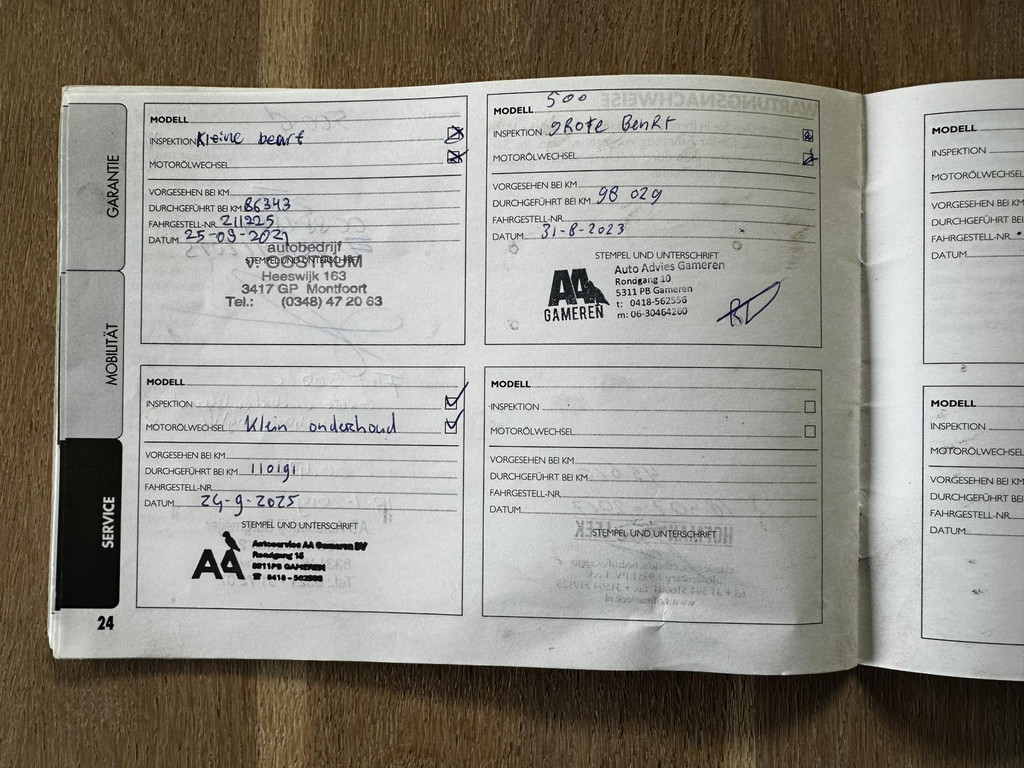 GARANTIE
MOBILITÄT
SERVICE
24
MODELL
INSPEKTION Kleine beurt
MOTORÖLWECHSEL
VORGESEHEN BEI KM
DURCHGEFÜHRT BEI KM 86343
FAHRGESTELL-NR. 211225
DATUM 25-09-2021
STEMPEL UND UNTERSCHRIFT
autobedrijf
v. OOSTRUM
Heeswijk 163
3417 GP Montfoort
Tel.: (0348) 47 20 63
MODELL 500
INSPEKTION gRote BeuRt
MOTORÖLWECHSEL
VORGESEHEN BEI KM
DURCHGEFÜHRT BEI KM 98 029
FAHRGESTELL-NR.
DATUM 31-8-2023
STEMPEL UND UNTERSCHRIFT
AA
GAMEREN
Auto Advies Gameren
Rondgang 10
5311 PB Gameren
t: 0418-562556
m: 06-30464260
MODELL
INSPEKTION
MOTORÖLWECHSEL Klein onderhoud
VORGESEHEN BEI KM
DURCHGEFÜHRT BEI KM 110191
FAHRGESTELL-NR.
DATUM 24-9-2025
STEMPEL UND UNTERSCHRIFT
AA
Autoservice AA Gameren BV
Rondgang 15
5311PB GAMEREN
MODELL
INSPEKTION
MOTORÖLWECHSEL
VORGESEHEN BEI KM
DURCHGEFÜHRT BEI KM
FAHRGESTELL-NR.
DATUM
STEMPEL UND UNTERSCHRIFT
MODELL
INSPEKTION
MOTORÖLWECHSEL
VORGESEHEN BEI KM
DURCHGEFÜHRT BEI
FAHRGESTELL-NR.
DATUM
MODELL
INSPEKTION
MOTORÖLWECHSEL
VORGESEHEN BEI KM
DURCHGEFÜHRT BEI
FAHRGESTELL-NR.
DATUM